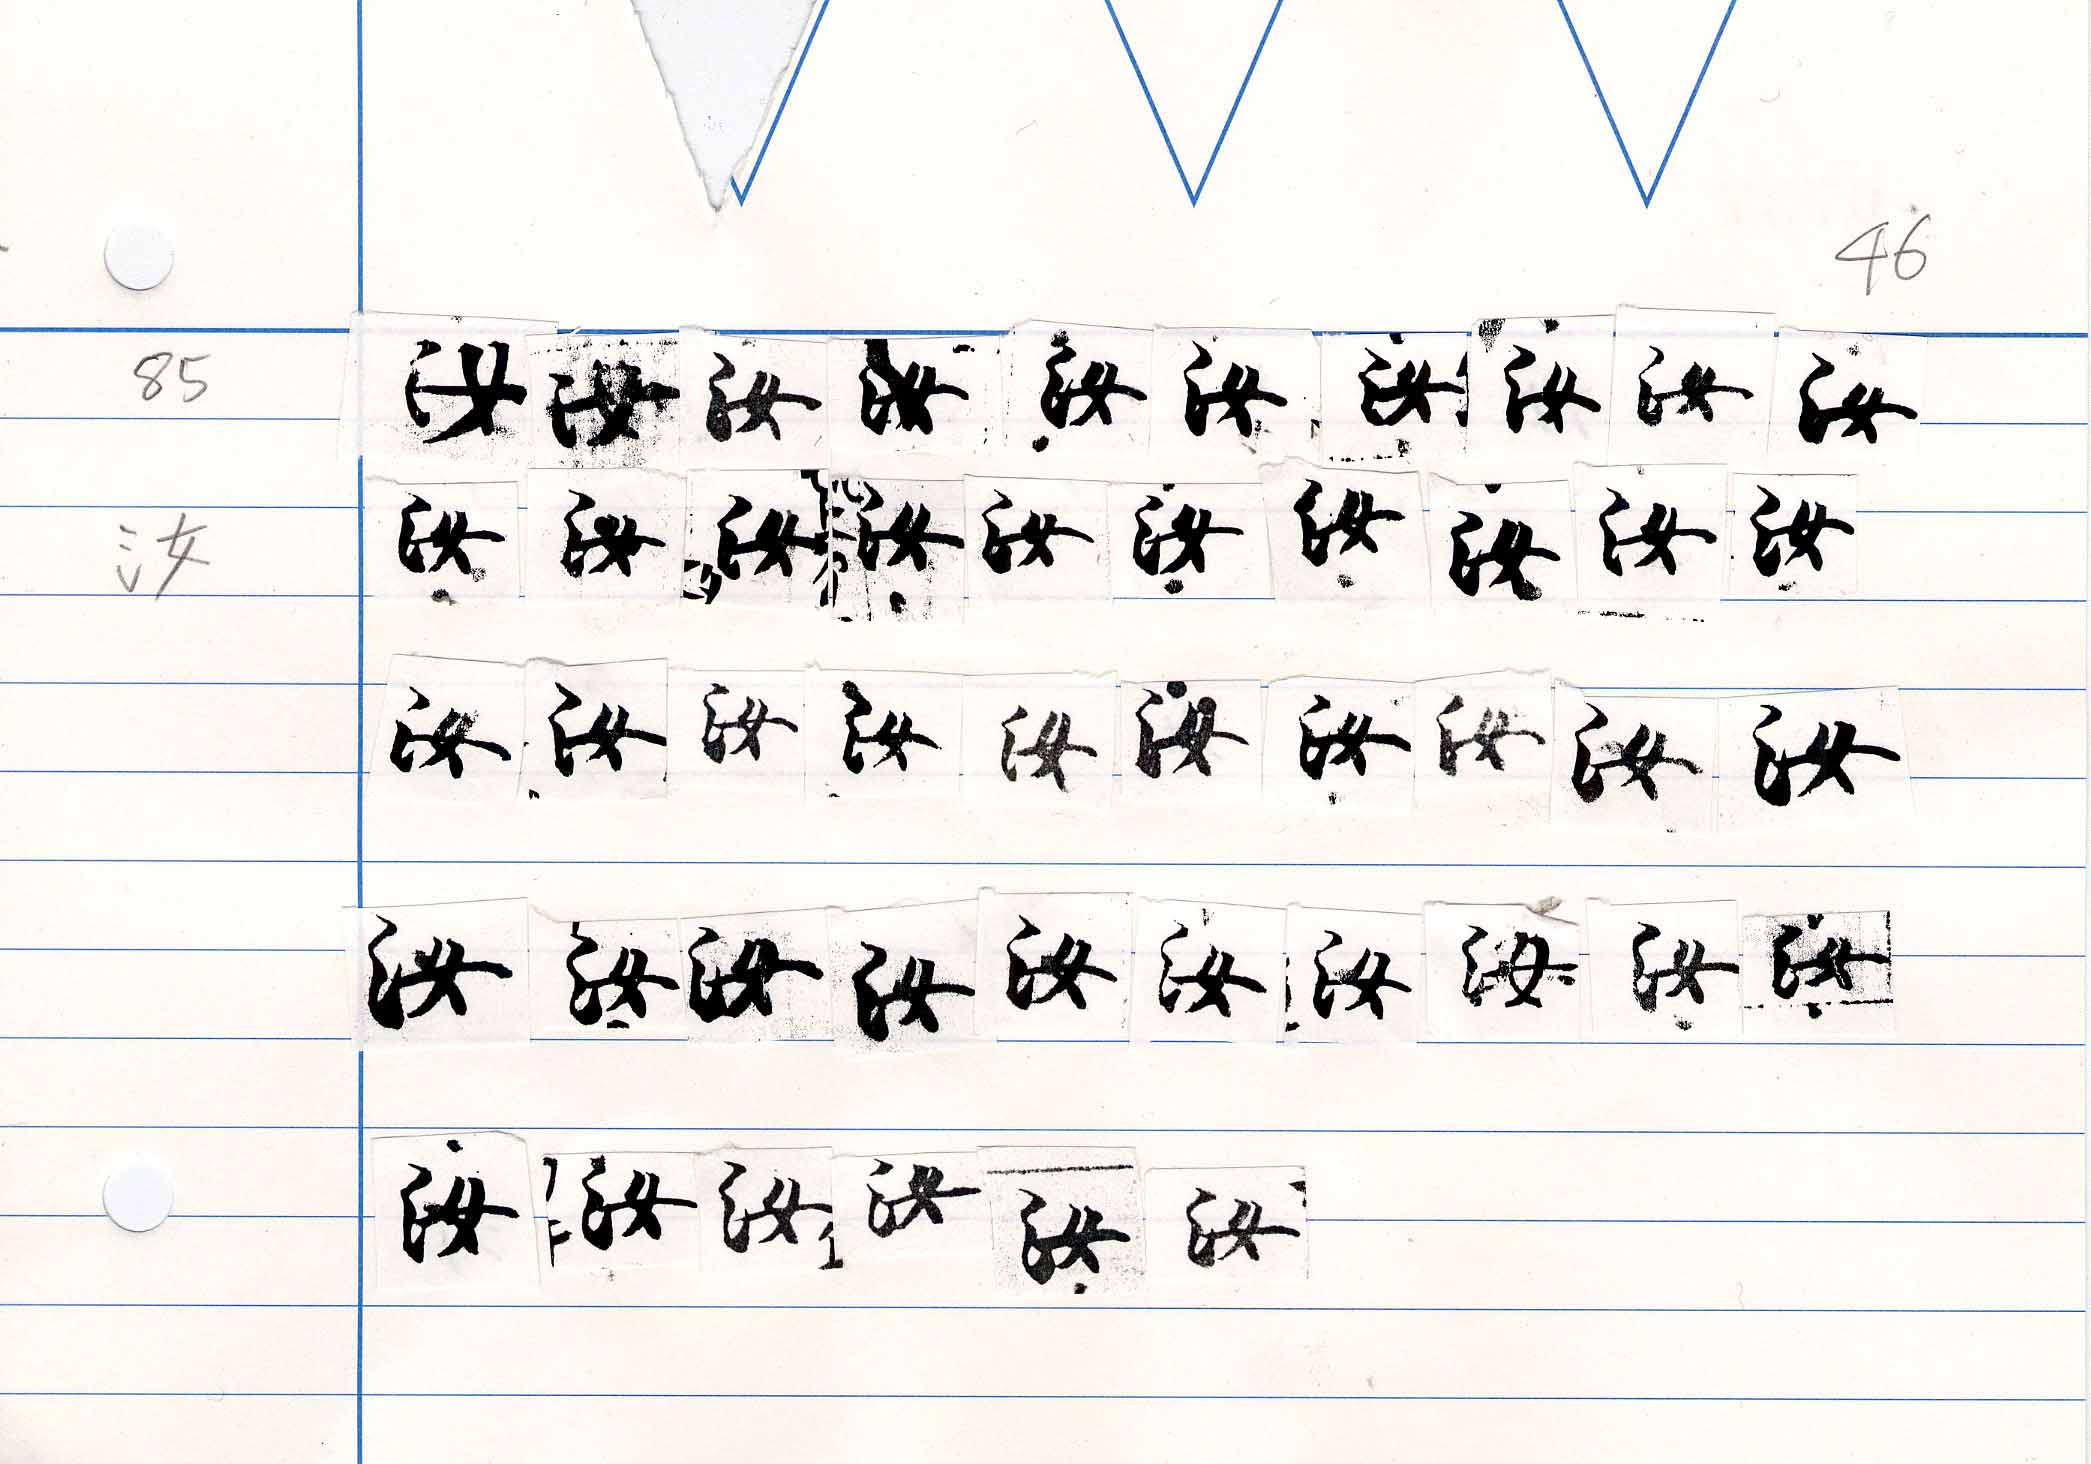 46
85
汝汝汝汝汝汝汝汝汝汝
汝
汝汝汝汝汝汝汝汝汝汝
汝汝汝汝汝汝汝汝汝汝
汝汝汝汝汝汝汝汝汝汝
汝汝汝汝汝汝